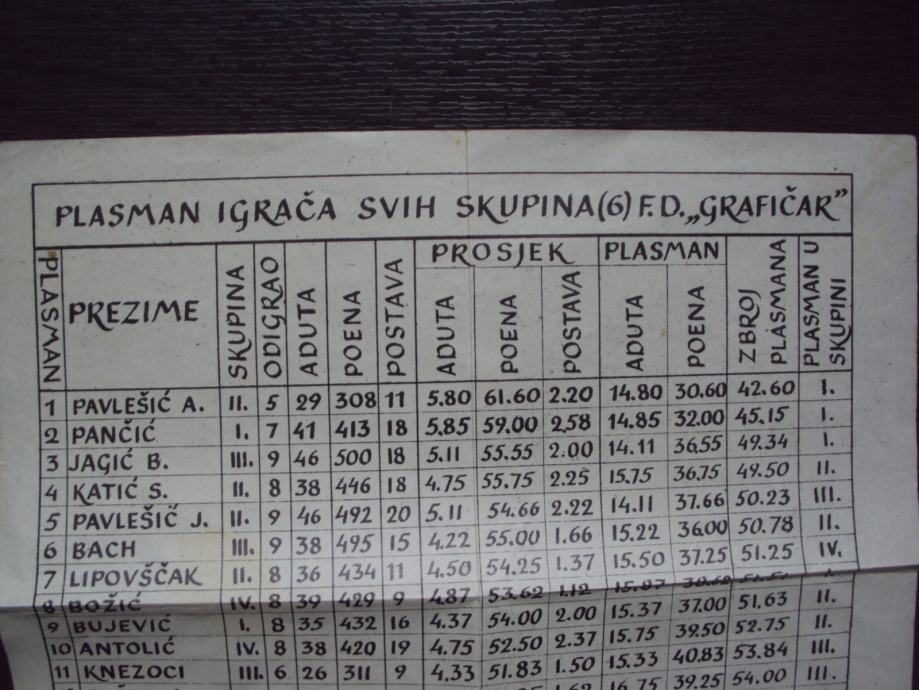 PLASMAN IGRAČA SVIH SKUPINA (6) F.D. „GRAFIČAR”
PLASMAN PREZIME SKUPINA ODIGRAO ADUTA POENA POSTAVA PROSJEK ADUTA POENA POSTAVA PLASMAN ADUTA POENA ZBROJ PLASMANA PLASMAN U SKUPINI
1 PAVLEŠIĆ A. II. 5 29 308 11 5.80 61.60 2.20 14.80 30.60 42.60 I.
2 PANČIĆ I. 7 41 413 18 5.85 59.00 2.58 14.85 32.00 45.15 I.
3 JAGIĆ B. III. 9 46 500 18 5.11 55.55 2.00 14.11 36.55 49.34 I.
4 KATIĆ S. II. 8 38 446 18 4.75 55.75 2.25 15.75 36.75 49.50 II.
5 PAVLEŠIĆ J. II. 9 46 492 20 5.11 54.66 2.22 14.11 37.66 50.23 III.
6 BACH III. 9 38 495 15 4.22 55.00 1.66 15.22 36.00 50.78 II.
7 LIPOVŠČAK II. 8 36 434 11 4.50 54.25 1.37 15.50 37.25 51.25 IV.
8 BOŽIĆ IV. 8 39 429 9 4.87 53.62 1.12 15.87
9 BUJEVIĆ I. 8 35 432 16 4.37 54.00 2.00 15.37 37.00 51.63 II.
10 ANTOLIĆ IV. 8 38 420 19 4.75 52.50 2.37 15.75 39.50 52.75 II.
11 KNEZOCI III. 6 26 311 9 4.33 51.83 1.50 15.33 40.83 53.84 III.
16.75 39.25 54.00 III.